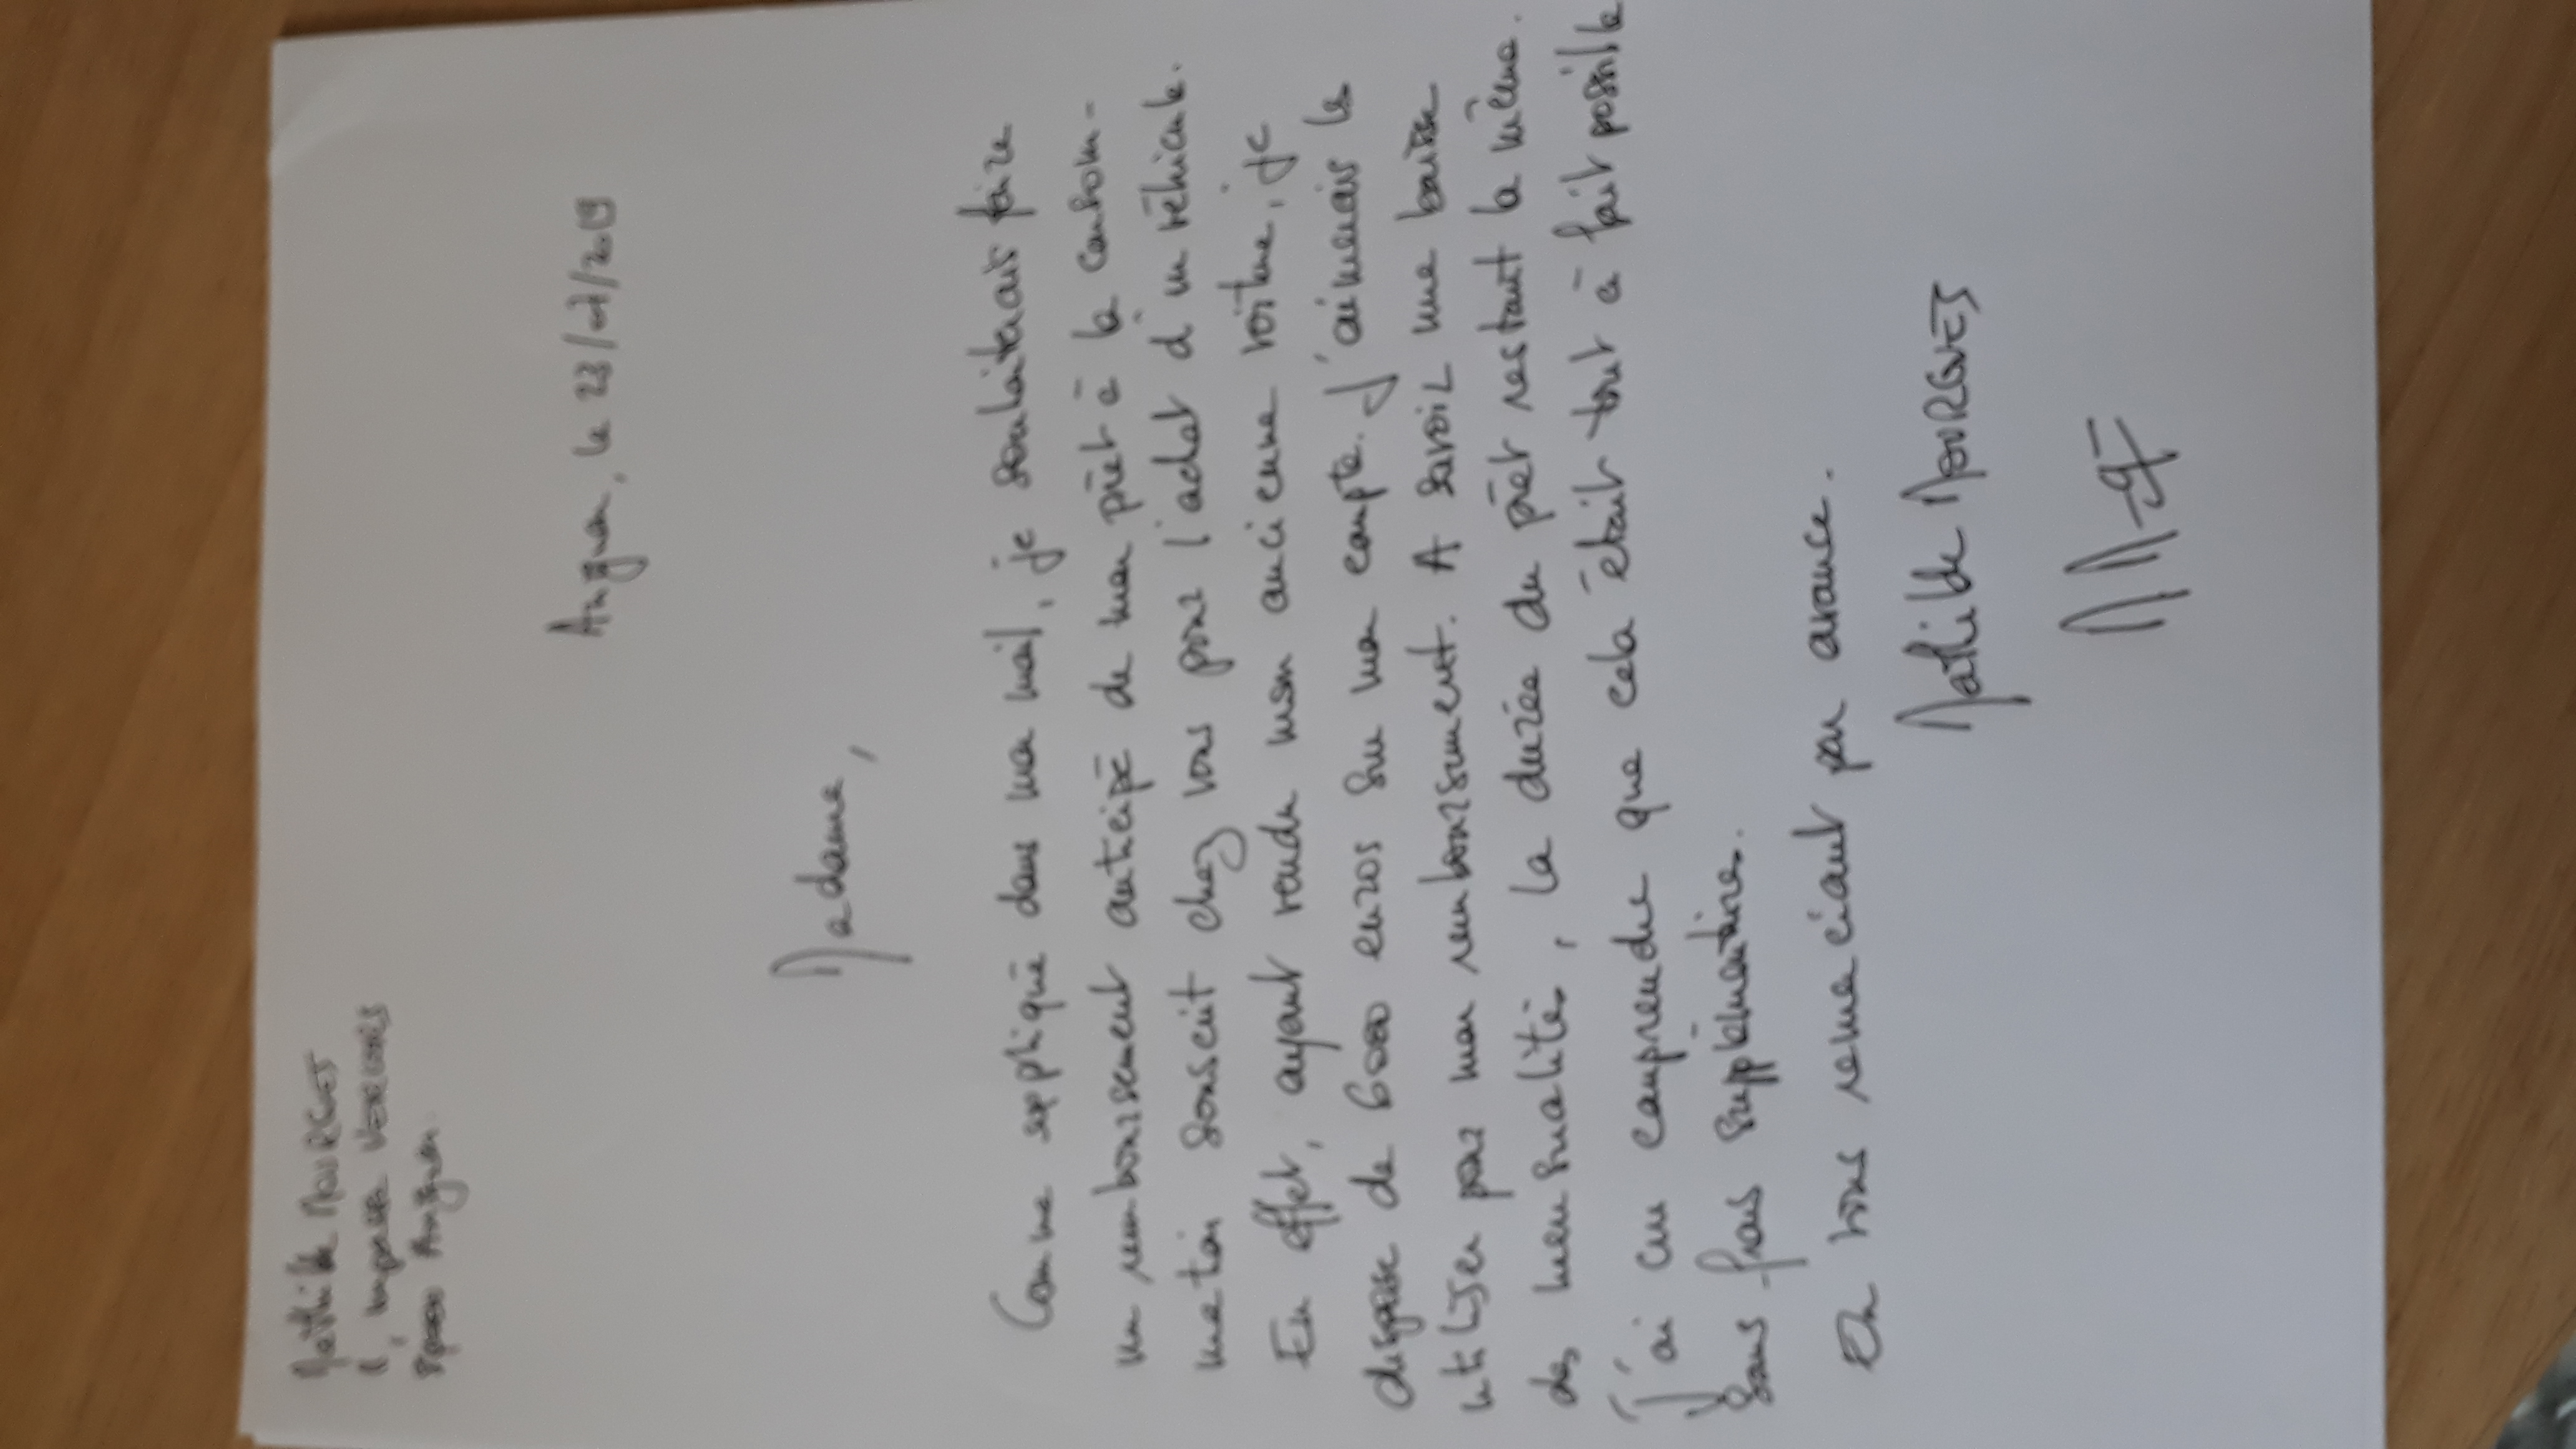 Mathilde MOURGUES
impasse VERCORS
Avignon
Avignon, le 23/07/2019
Madame,
Comme expliqué dans mon mail, je souhaiterais faire
un remboursement anticipé de mon prêt à la consom-
mation souscrit chez vous pour l'achat d'un véhicule.
En effet, ayant vendu mon ancienne voiture, je
dispose de 6000 euros sur mon compte. J'aimerais le
utiliser pour mon remboursement. A savoir une baisse
des mensualités, la durée du prêt restant la même.
J'ai cru comprendre que cela était tout à fait possible
sans frais supplémentaires.
En vous remerciant par avance.
Mathilde MOURGUES